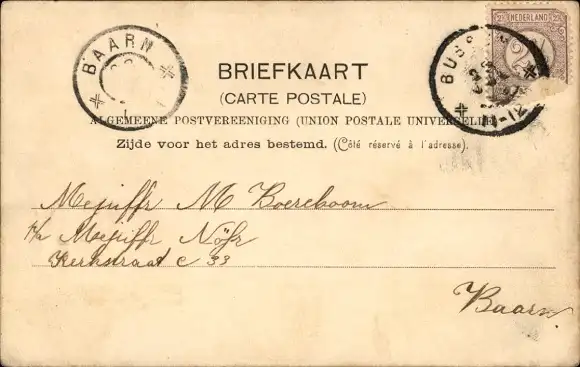 NEDERLAND
BAARN
BUSSUM
11-12
BRIEFKAART
(CARTE POSTALE)
ALGEMEENE POSTVEREENIGING (UNION POSTALE UNIVERSELLE)
Zijde voor het adres bestemd. (Côté réservé à l'adresse).
Mejuffr M Boereboom
p/a Mejuffr
Kerkstraat C 33
Baarn